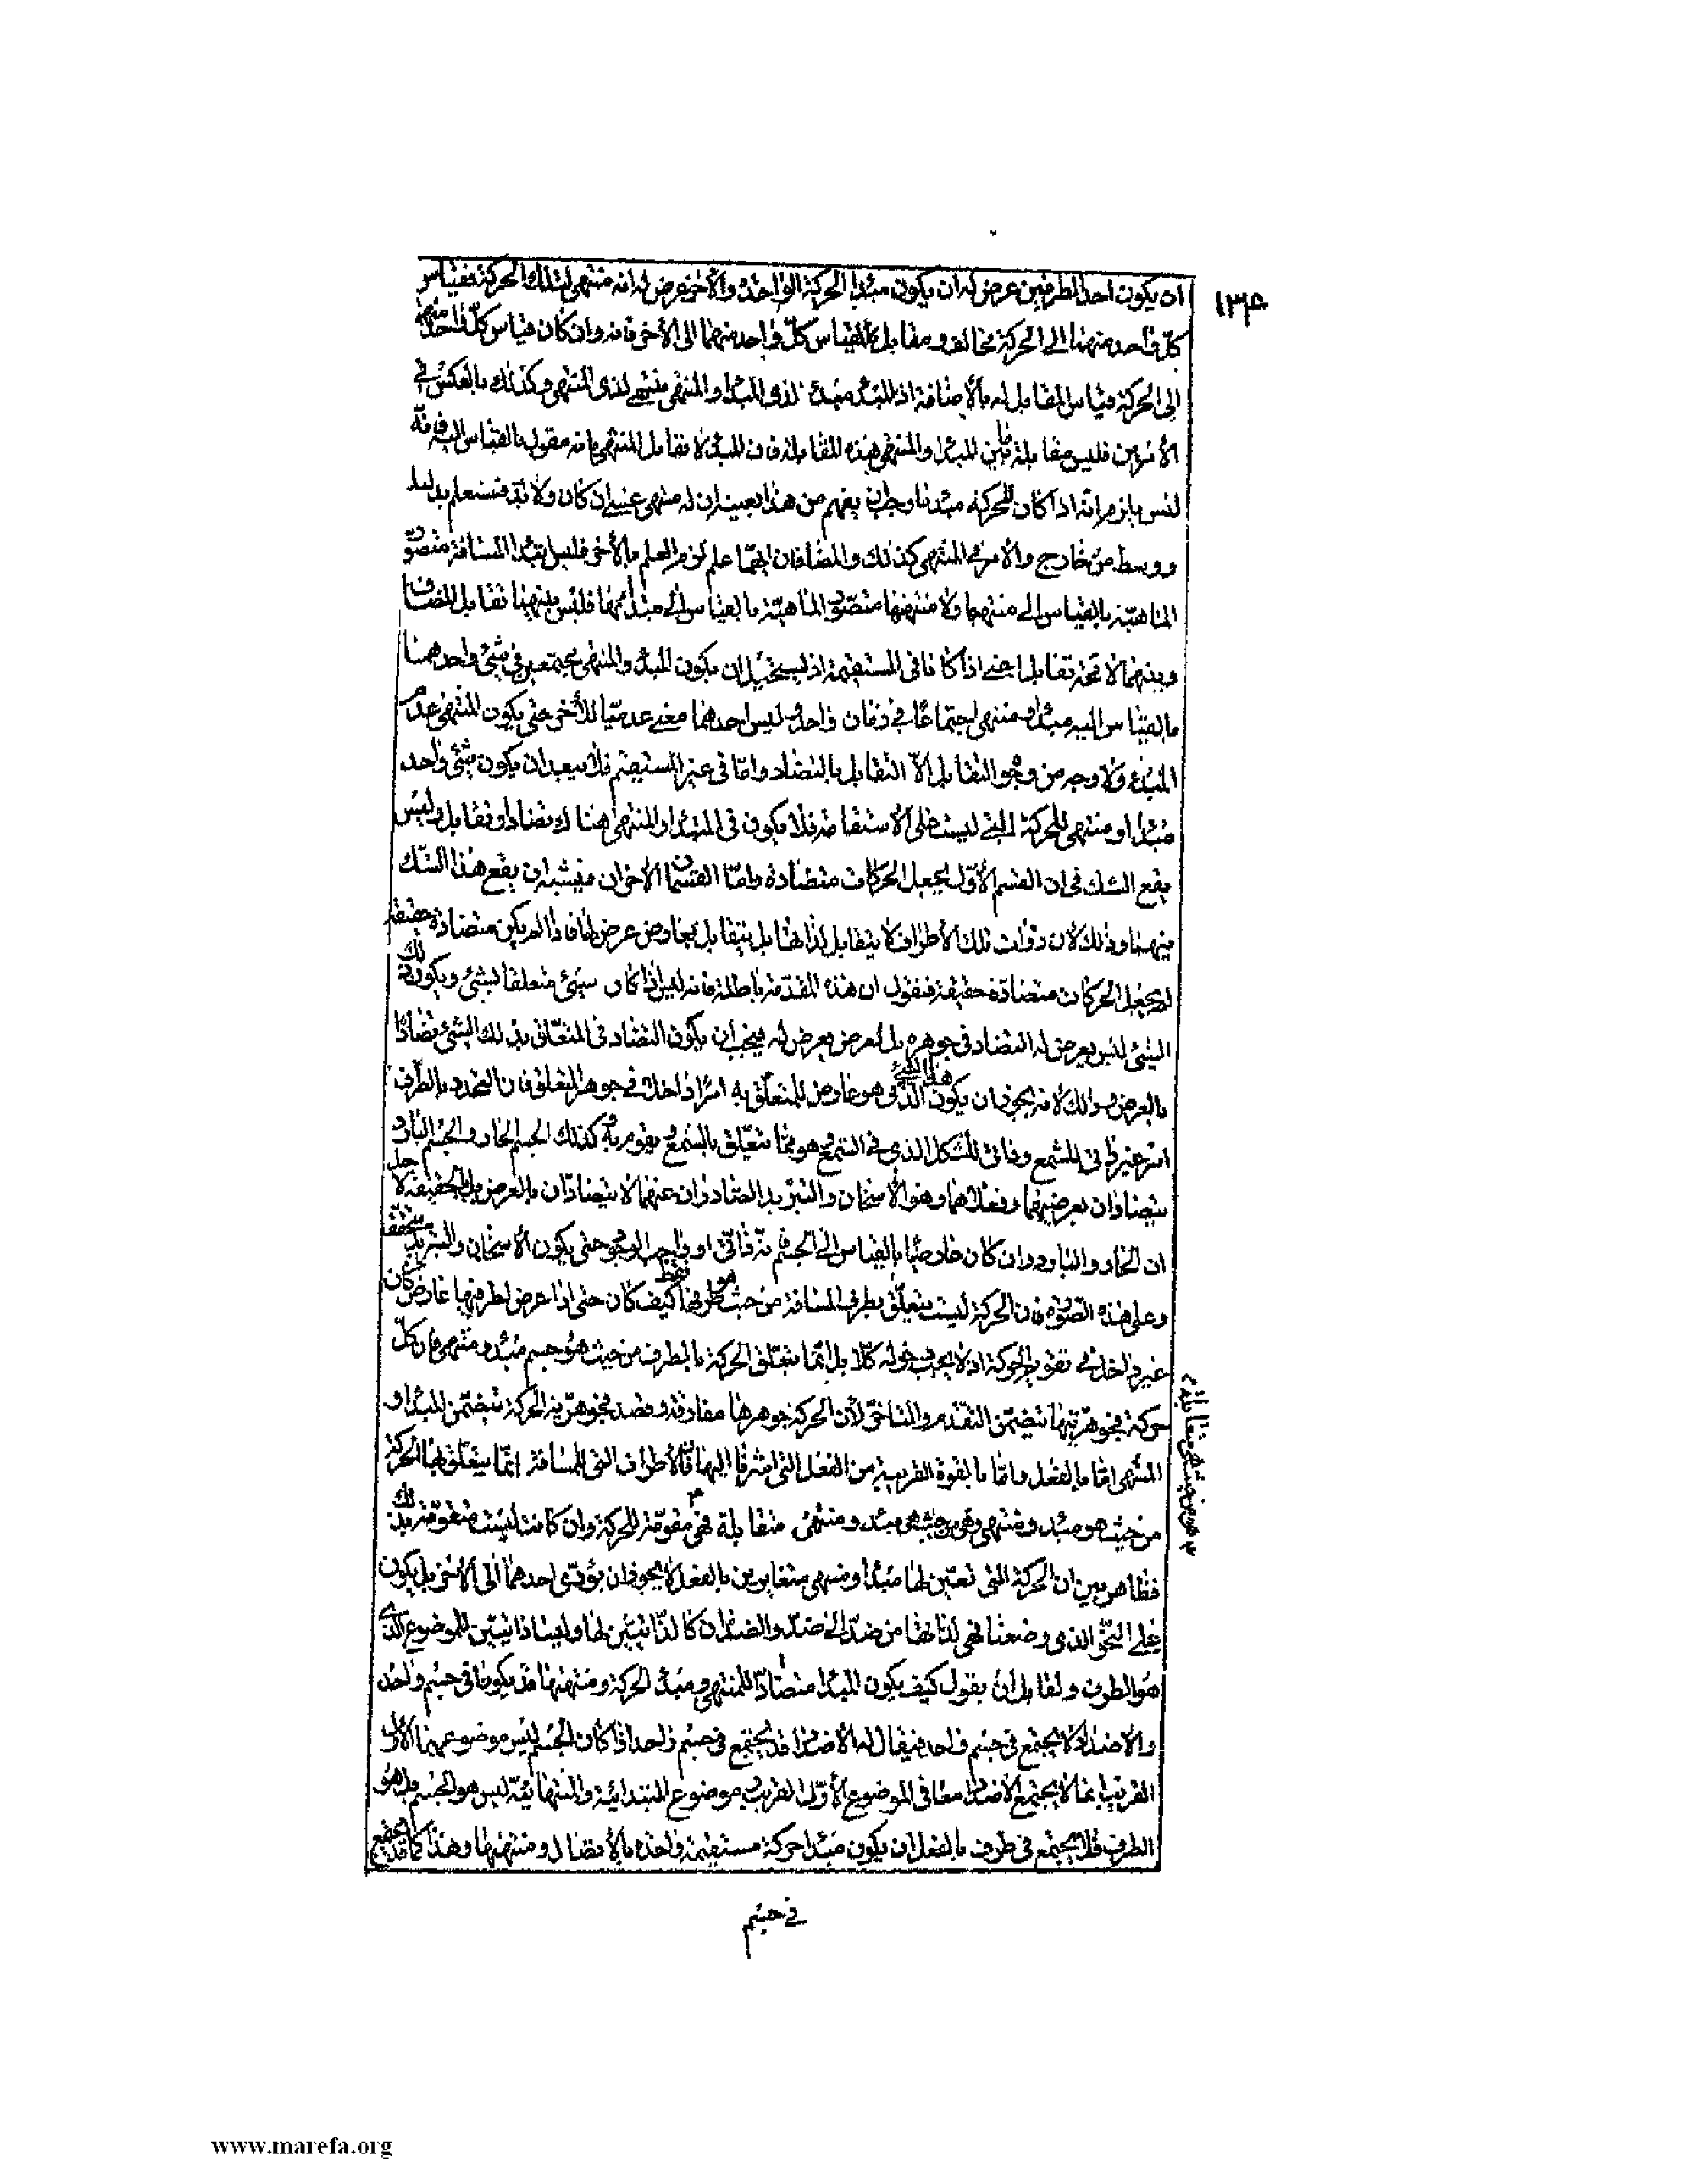 ١٣٤
ان يكون احد الطرفين عرض له ان يكون مبدأ الحركة الواحدة والآخر عرض له انه منتهى لتلك الحركة فقياس
كل واحد منهما الى الحركة مخالف ومقابل لقياس كل واحد منهما الى الآخر فانه وان كان قياس كل واحد منهما
الى الحركة قياس المقابل له بالاضافة اذ المبدأ مبدأ لذى المبدأ والمنتهى منتهى لذى المنتهى وكذلك بالعكس فى
الأمرين فليس مقابلة ما بين المبدأ والمنتهى هذه المقابلة فان المبدأ لا يقابل المنتهى بانه مقول بالقياس اليه فانه
ليس يلزم انه اذا كان للحركة مبدأ وجب ان يفهم من هذا بعينه ان له منتهى عسى ان كان ولا بد فستعلم بدليل
ووسط من خارج والأمر فى المنتهى كذلك والمضافان ايهما علم لزم العلم بالآخر فليس مبدأ المسافة متصور
الماهية بالقياس الى منتهيها ولا منتهيها متصور الماهية بالقياس الى مبدئها فليس بينهما تقابل المضاف
وبينهما لا محة تقابل اعنى اذا كانا فى المستقيمة اذ يستحيل ان يكون المبدأ والمنتهى يجتمعان فى شئ واحد هما
بالقياس اليه مبدأ ومنتهى اجتماعا فى زمان واحد وليس احدهما معنى عدميا للآخر حتى يكون المنتهى عدم
المبدأ ولا وجه من وجوه التقابل الا التقابل بالتضاد واما فى غير المستقيم فلا يبعد ان يكون شئ واحد
مبدأ ومنتهى للحركة التى ليست على الاستقامة فلا يكون فى المبتدأ والمنتهى هناك تضاد او تقابل وليس
يقع الشك فى ان القسم الأول يجعل الحركات متضادة واما القسمان الاخران فيشبه ان يقع هذا الشك
فيهما وذلك لان ذوات تلك الأطراف لا يتقابل لذاتها بل يتقابل بعارض عرض لها فاذا لم يكن متضادة حقيقة
لم يجعل الحركات متضادة حقيقة فنقول ان هذه المقدمة باطلة فانه ليس اذا كان شئ متعلقا بشئ ويكون ذلك
الشئ ليس يعرض له التضاد فى جوهره بل لعرض يعرض له يجب ان يكون التضاد فى المتعلق بذلك الشئ تضادا
بالعرض وذلك لانه يجوز ان يكون هذا الشئ الذى هو عارض للمتعلق به امرا داخلا فى جوهر المتعلق فان التحدد بالطرف
امر غير ذاتى للشمع وذاتى للشكل الذى فى الشمع وهو مما يتعلق بالشمع ويقوم به كذلك الجسم الحار والجسم البارد
يتضادان بعرضيهما وفعلاهما وهو الأسخان والتبريد الصادران عنهما لا يتضادان بالعرض بل بالحقيقة لاجل
ان الحار والبارد وان كان عارضا بالقياس الى الجسم فانه ذاتى او واجب الوجود حتى يكون الأسخان والتبريد متحققة
وعلى هذه الصورة فان الحركة ليست يتعلق بطرف المسافة من حيث هو طرف فقط كيف كان حتى اذا عرض لطرفيها عارض كان
غير داخل فى تقويم الحركة اذ لا يجب دخوله كلا بل انما يتعلق الحركة بالطرف من حيث هو جسم مبدأ ومنتهى فان كل
حركة فجوهريتها تتضمن التقدم والتأخر لأن الحركة جوهرها مفارقة وقصد فجوهرية الحركة تتضمن المبدأ و
المنتهى اما بالفعل واما بالقوة القريبة من الفعل التى اشرنا اليها فالأطراف التى للمسافة انما يتعلق بها الحركة
من حيث هو مبدأ ومنتهى وهو من حيث هو مبدأ ومنتهى متقابلة فهى مقومة للحركة وان كانت ليست متقومة بذلك
فظاهر بين ان الحركة التى تعين لها مبدأ ومنتهى متغايرين بالفعل لا يجوز ان يؤدى احدهما الى الآخر بل يكون
على النحو الذى وضعنا فهى لذاتها من ضد الى ضد والضدان كالذاتيتين لها وليسا ذاتيتين للموضوع الذى
هو الطرف ولقائل ان يقول كيف يكون المبدأ متضادا للمنتهى ومبدأ الحركة ومنتهيها قد يكونا فى جسم واحد
والاضداد لا يجتمع فى جسم واحد فيقال له الأضداد قد يجتمع فى جسم واحد اذا كان الجسم ليس موضوعهما الأول
القريب انما لا يجتمع الأضداد معا فى الموضوع الأول القريب وموضوع المبتدائية والمنتهائية ليس هو الجسم بل هو
الطرف فلا يجتمع فى طرف بالفعل ان يكون مبدأ حركة مستقيمة واحدة بالأتصال ومنتهيها وهذا كما قد يجتمع
فى جسم
www.marefa.org